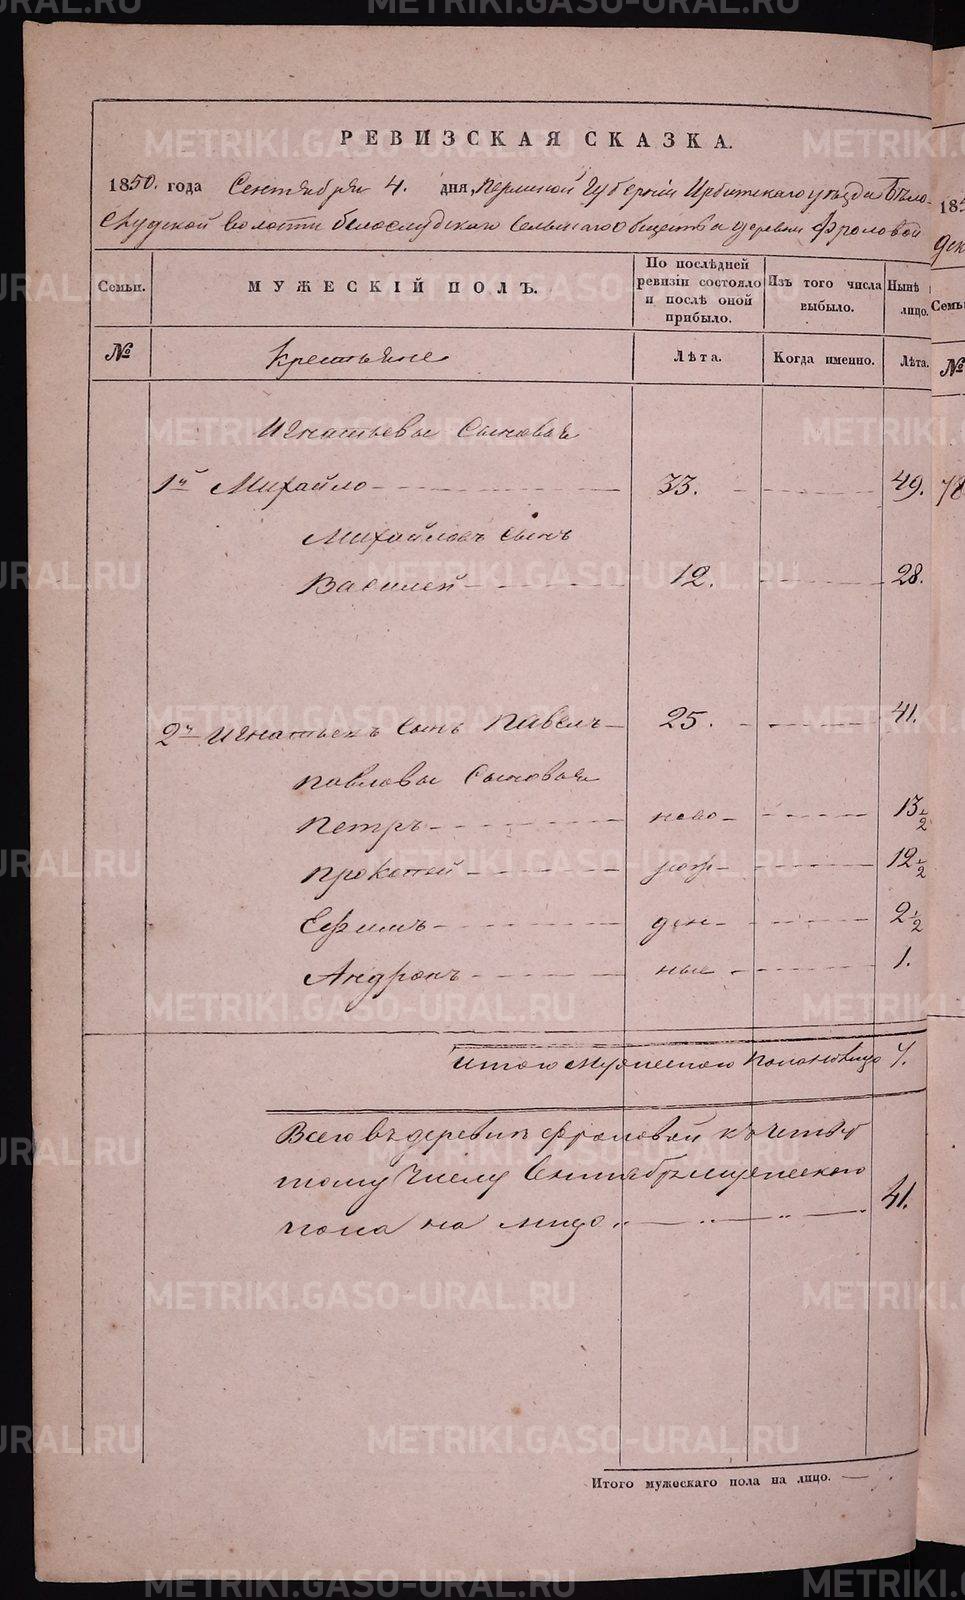 РЕВИЗСКАЯ СКАЗКА.
1850. года Сентября 4. дня, Пермской Губернии Ирбитскаго уезда Бело-
слудской волости белослудскаго Сельскаго Общества деревни Фроловой
Семьи.
МУЖЕСКІЙ ПОЛЪ.
По послѣдней ревизіи состояло и послѣ оной прибыло.
Изъ того числа выбыло.
Нынѣ лицо.
№
Крестьяне
Лѣта.
Когда именно.
Лѣта.
Игнатьевы Сыновья
1й Михайло 33. 49.
Михайловъ сынъ
Василей 12. 28.
2й Игнатьевъ Сынъ Павелъ 25. 41.
Павловы Сыновья
Петръ ново 13 1/2
Прокопей рож 12 1/2
Ефимъ ден 2 1/2
Андронъ ные 1.
итого мужескаго пола на лицо 7.
Всего въ деревне Фроловой къ четвер
тому числу Сентября мужескаго
пола на лицо 41.
Итого мужескаго пола на лицо.
185
дек
Семьи
№
78
METRIKI.GASO-URAL.RU